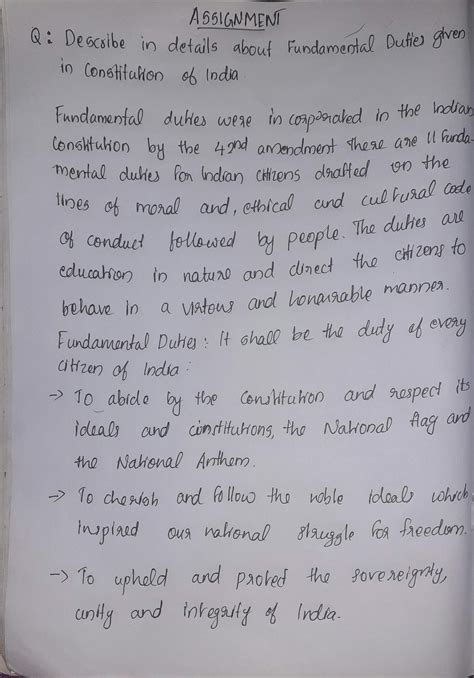 ASSIGNMENT
Q: Describe in details about Fundamental Duties given
in Constitution of India.
Fundamental duties were in corporated in the Indian
Constitution by the 42nd amendment There are 11 Funda-
mental duties for Indian citizens drafted on the
lines of moral and, ethical and cultural code
of conduct followed by people. The duties are
education in nature and direct the citizens to
behave in a virtous and honourable manner.
Fundamental Duties: It shall be the duty of every
citizen of India:
→ To abide by the Constitution and respect its
ideals and institutions, the National flag and
the National Anthem.
→ To cherish and follow the noble ideals which
inspired our national struggle for freedom.
→ To upheld and protect the sovereignty,
unity and integrity of India.